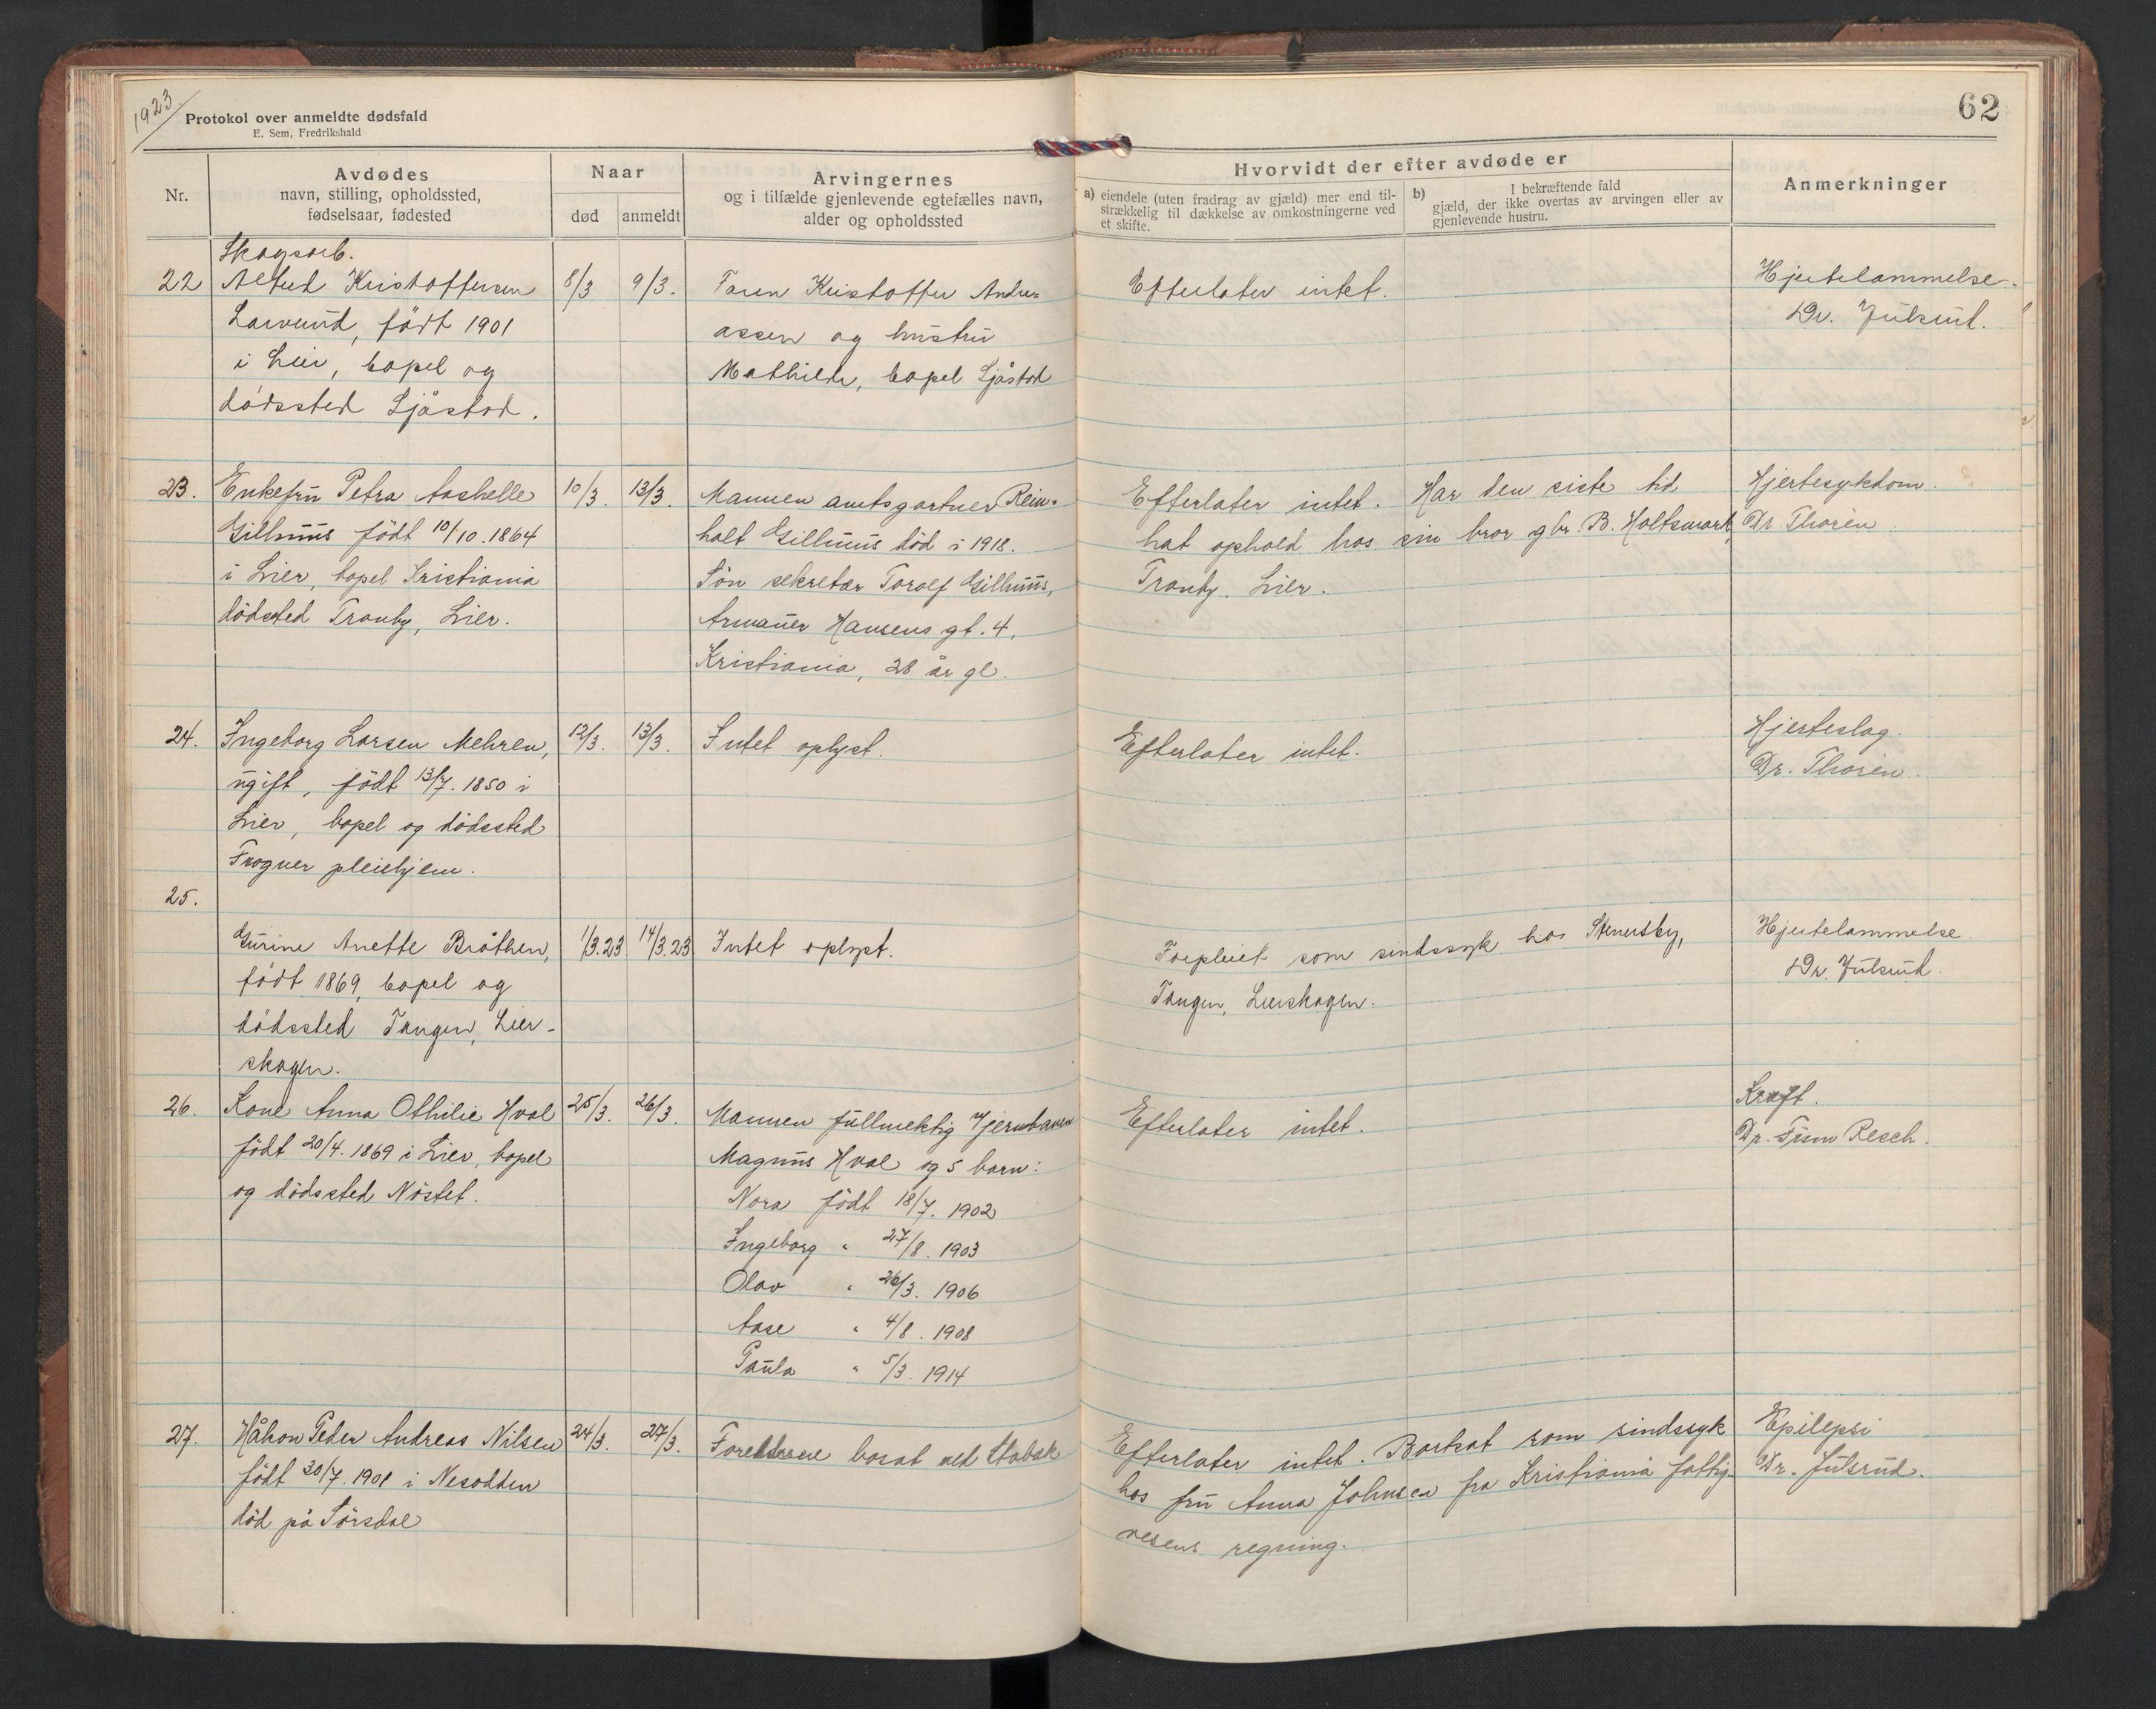 1923.
Protokol over anmeldte dødsfald
E. Sem, Fredrikshald
62
Nr.
Avdødes
navn, stilling, opholdssted,
fødselsaar, fødested
Naar
død
anmeldt
Arvingernes
og i tilfælde gjenlevende egtefælles navn,
alder og opholdssted
Hvorvidt der efter avdøde er
a) eiendele (uten fradrag av gjæld) mer end til-
strækkelig til dækkelse av omkostningerne ved
et skifte.
b) I bekræftende fald
gjæld, der ikke overtas av arvingen eller av
gjenlevende hustru.
Anmerkninger
22
Skogsarb.
Alfred Kristoffersen
Larvund, født 1901
i Lier, bopel og
dödssted Sjåstad.
8/3
9/3.
Faren Kristoffer Andre-
assen og hustru
Mathilde, bopel Sjåstad
Efterlater intet.
Hjertelammelse.
Dr. Julsrud.
23.
Enkefru Petra Ashelle
Gillhuus født 10/10. 1864
i Lier, bopel Kristiania
dödsted Tranby, Lier.
10/3.
13/3.
Mannen amtsgartner Rein-
holt Gillhuus död i 1918.
Sön sekretær Toralf Gillhuus,
Armauer Hansens gt. 4.
Kristiania, 28 år gl.
Efterlater intet. Har den siste tid
hat ophold hos sin bror gbr. B. Holtsmark,
Tranby, Lier.
Hjertesykdom.
Dr. Thorén
24.
Ingeborg Larsen Mehren,
ugift, födt 13/7. 1850 i
Lier, bopel og dödssted
Frogner pleiehjem.
12/3.
13/3.
Intet oplyst.
Efterlater intet.
Hjerteslag.
Dr. Thorén.
25.
Gurine Anette Bråthen,
født 1869, bopel og
dödssted Tangen, Lier-
skogen.
11/3.23
14/3.23
Intet oplyst.
Forpleiet som sindssyk hos Stenersby,
Tangen, Lierskogen.
Hjertelammelse.
Dr. Julsrud.
26.
Kone Anna Othilie Hval
födt 20/4. 1869 i Lier, bopel
og dödssted Nöstet.
25/3.
26/3.
Mannen fullmektig Hjernbanen
Magnus Hval og 5 barn:
Nora födt 18/7. 1902
Ingeborg " 27/8. 1903
Olav " 26/3. 1906
Aase " 4/8. 1908
Paula " 5/3. 1914
Efterlater intet.
Kræft.
Dr. Resch.
27.
Håkon Peder Andreas Nilsen
födt 30/7. 1901 i Nesodden
död på Sörsdal
24/3.
27/3.
Foreldrene bosat ved Stabæk
Efterlater intet. Bortsat som sindssyk
hos fru Anna Johnsen fra Kristiania fattig-
vesens regning.
Epilepsi
Dr. Julsrud.